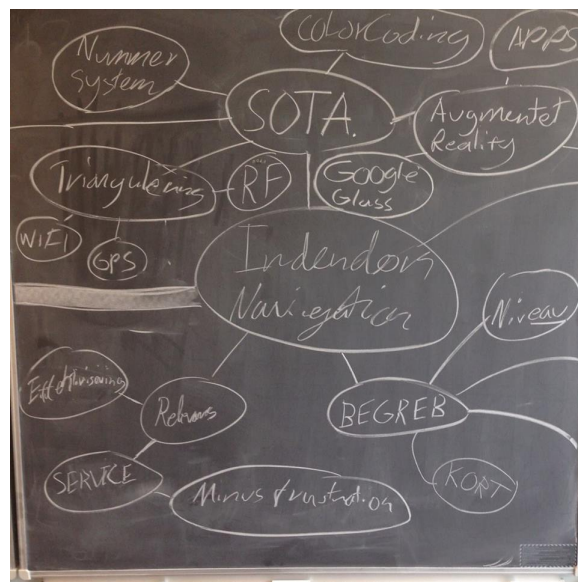 ColorCoding
APPS
Nummer
System
SOTA.
Augmentet
Reality
Triangulering
RF
Google
Glass
WIFI
GPS
Indendørs
Navigation
Niveau
Effektivisering
Relevans
BEGREB
SERVICE
KORT
Minus frustration